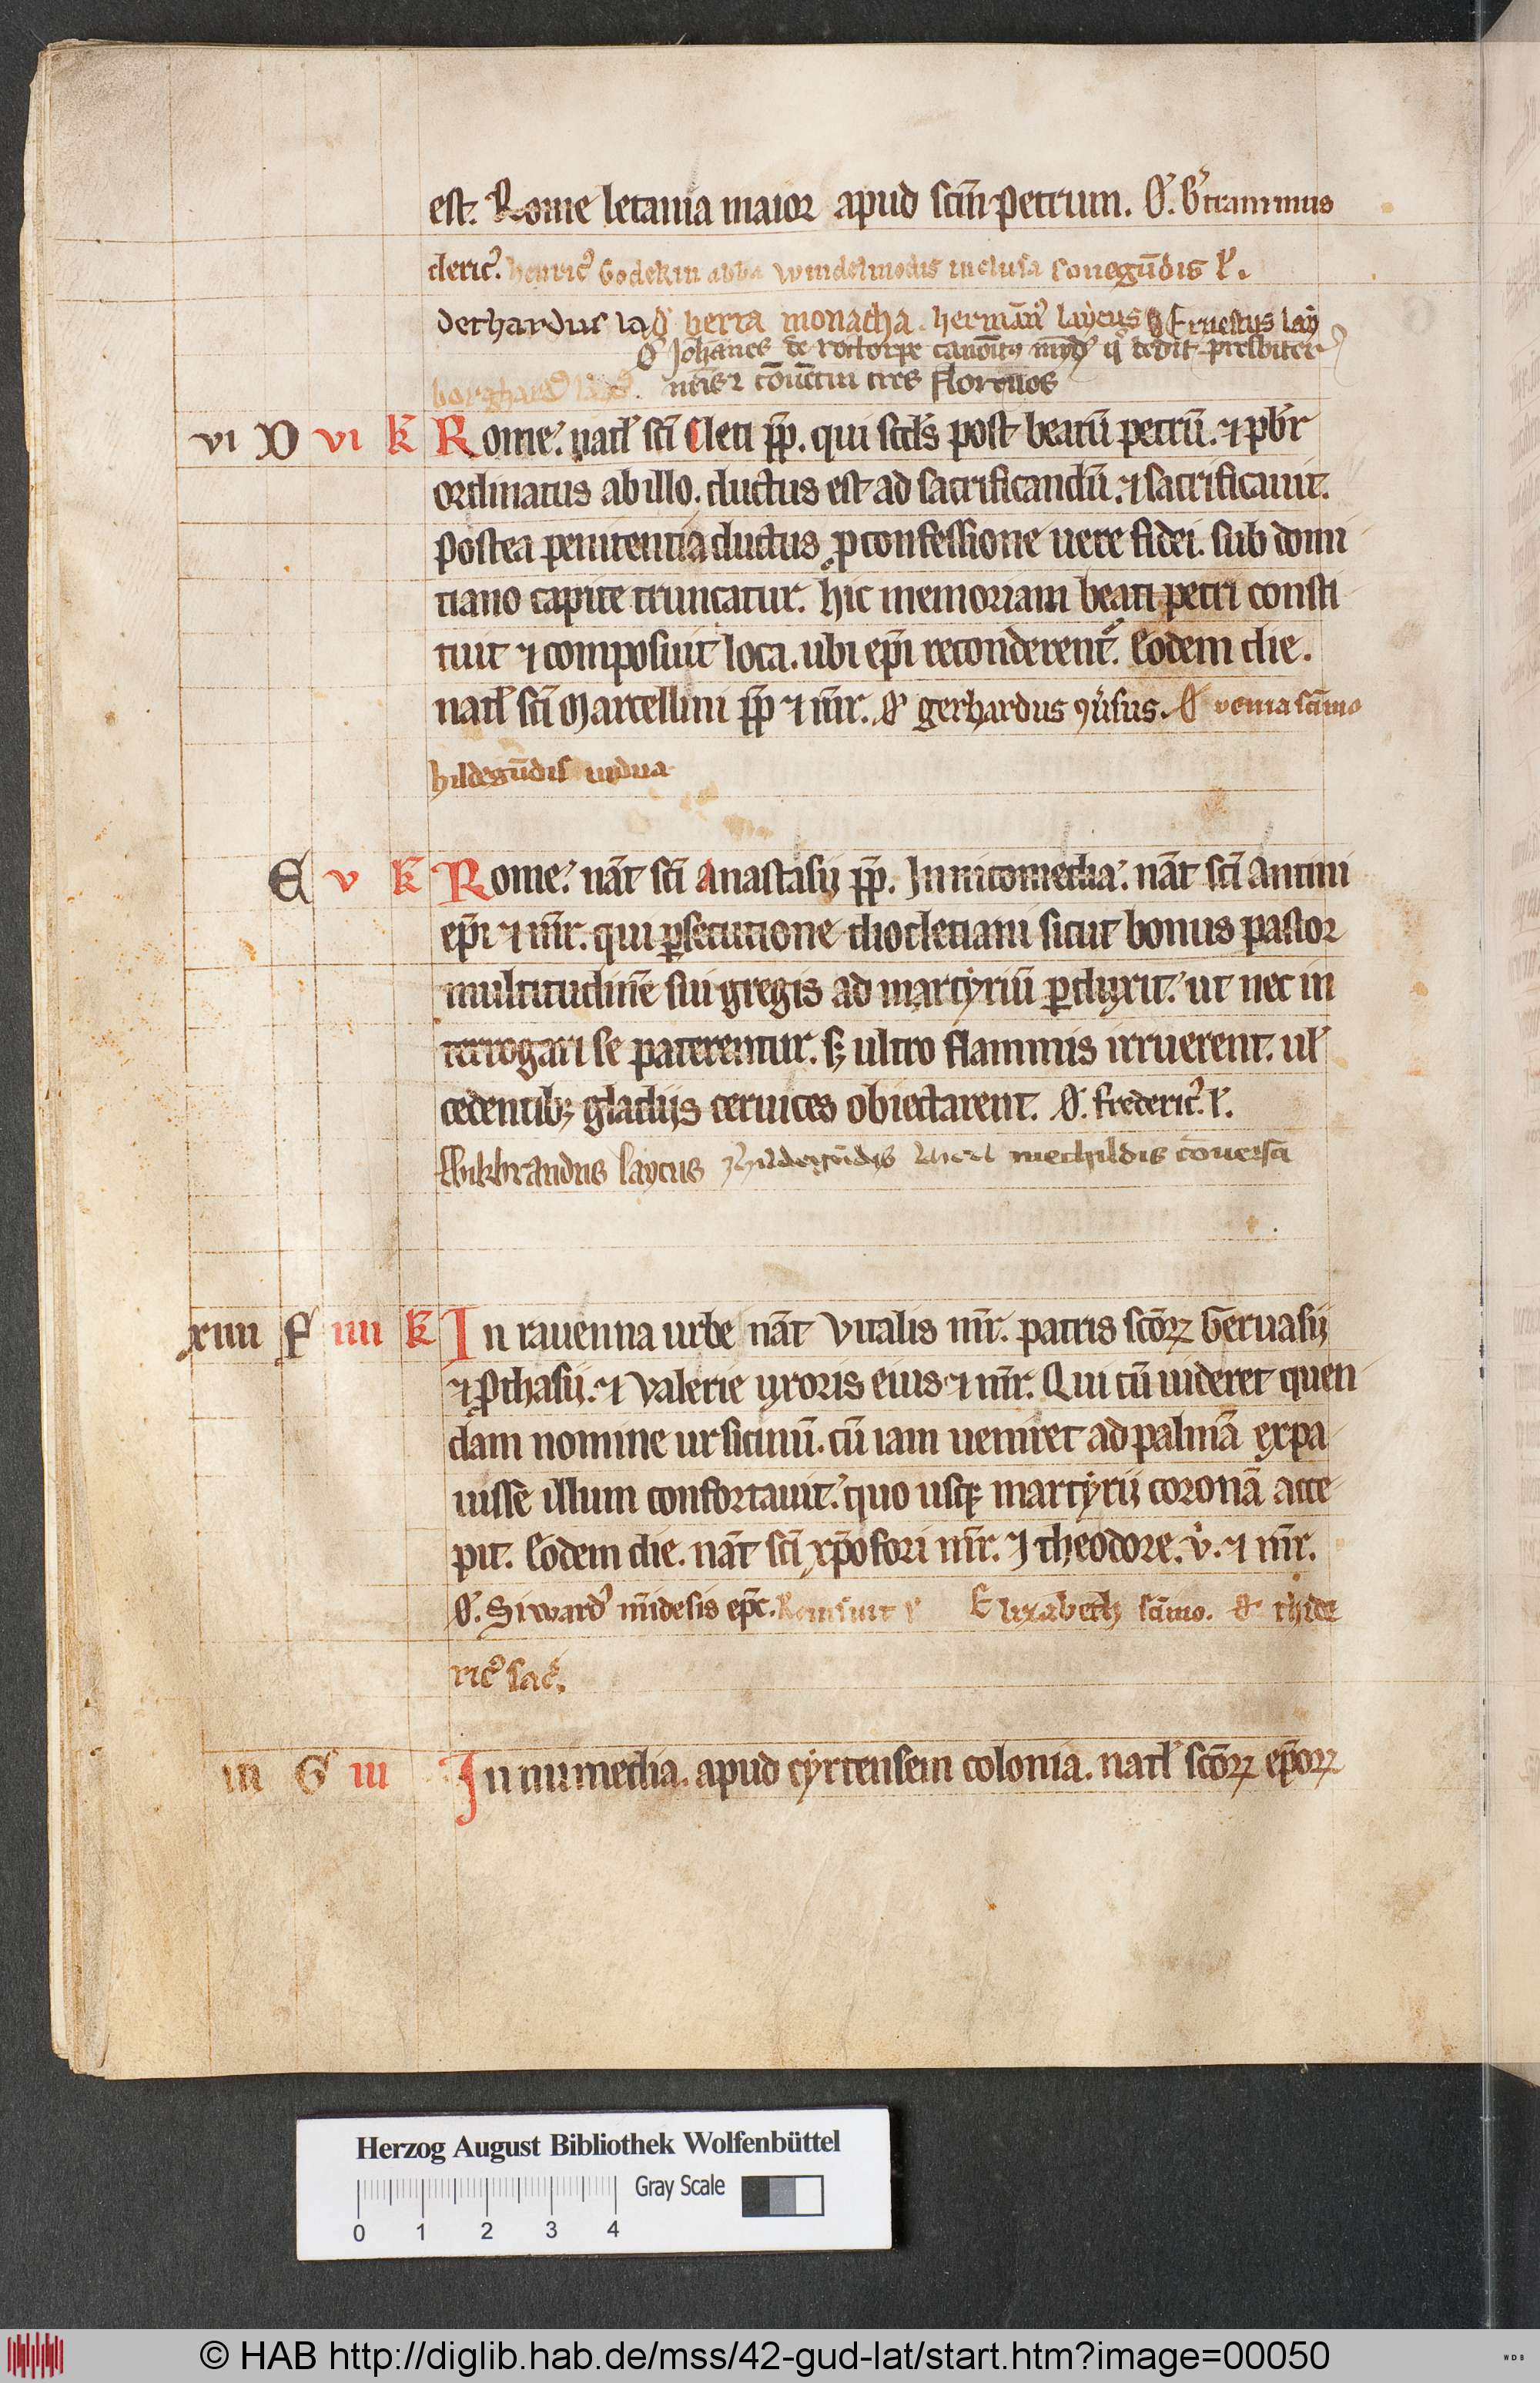 est. Rome letania maior apud scm̄ petrum. O'. b'trammus
cleric᾽. henric᾽ Godekin abba windelmodis inclusa conegūdis l'.
Dethardus lad᾽ berta monacha. hermān᾽ laẏcus Ernestus laẏ
O' Johānes de rottorpe canōic᾽ q' dedit presbiter
borghard᾽ nrīs ⁊ cōuētui tres florenos
vi D vi k̄ Rome. natl' sc̄i Cleti pp̄. qui scds' post beatū petrū. ⁊ pb'r
ordinatus ab illo. ductus est ad sacrificandū. ⁊ sacrificauit.
postea penitentia ductus ꝓ confessione uere fidei. sub domi
tiano capite truncatur. hic memoriam beati petri consti
tuit ⁊ composuit loca. ubi ep̄i reconderent᾽. Eodem die.
natl' sc̄i Marcellini pp̄ ⁊ mr̄. O' gerhardus ꝯu'sus. O' venia sc̄imo
hildegūdis uidua
E v k̄ Rome. nāt sc̄i Anastasij pp̄. In nicomedia. nāt sc̄i Antimi
ep̄i ⁊ mr̄. qui ꝑsecutione diocletiani sicut bonus pastor
multitudinē sui gregis ad martẏriū ꝑduxit. ut nec in
terrogari se paterentur. sꝫ ultro flammis irruerent. ul'
cedentibꝫ gladijs ceruices obiectarent. O'. frederic᾽. l'.
Wikbrandus laycus hildegūdis mechildis cōuersa
xiiii F iiii k̄ In rauenna urbe nāt Vitalis mr̄. patris scōꝝ Geruasij
⁊ ꝓthasij. ⁊ Valerie uxoris eius ⁊ mr̄. Qui cū uideret quen
dam nomine ursicinū. cū iam ueniret ad palmā expa
uisse illum confortauit. quo usqꝫ martẏrij coronā acce
pit. Eodem die. nāt sc̄i xp̄ofori mr̄. ⁊ theodore. v᾽. ⁊ mr̄.
O'. Siward᾽ mīdesis ep̄c. Reinsuit l' Elyzabeth sc̄imo. O' thide
ric᾽ sac᾽.
iii G iii In numedia. apud cẏrtensem colonia. natl' scōꝝ ep̄oꝝ
Herzog August Bibliothek Wolfenbüttel
Gray Scale
0 1 2 3 4
© HAB http://diglib.hab.de/mss/42-gud-lat/start.htm?image=00050
WDB